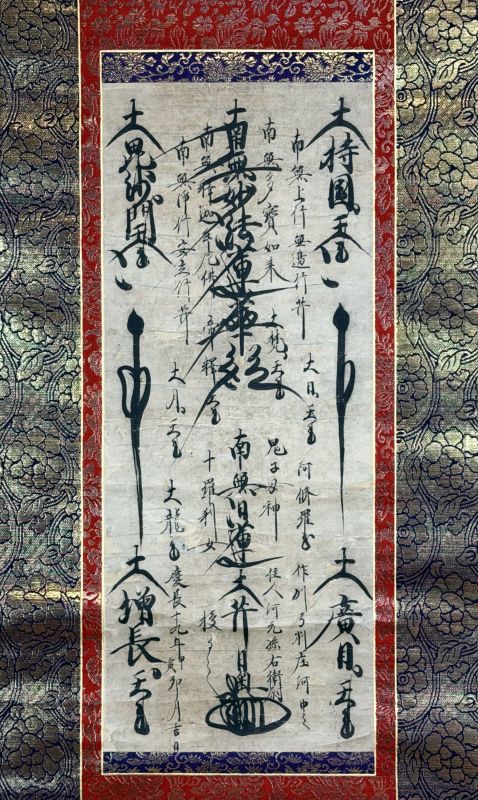 大持國天王
南無上行無邊行菩薩
南無多寶如来
南無妙法蓮華経
南無釋迦牟尼佛
南無浄行安立行菩薩
大毘沙門天王
大梵天王
釋
大日天王
大月天王
鬼子母神
十羅刹女
阿脩羅王
大龍王
南無日蓮大菩薩
大廣目天王
大増長天王
住人河元孫右衛門
授
慶長十九年
卯月吉日